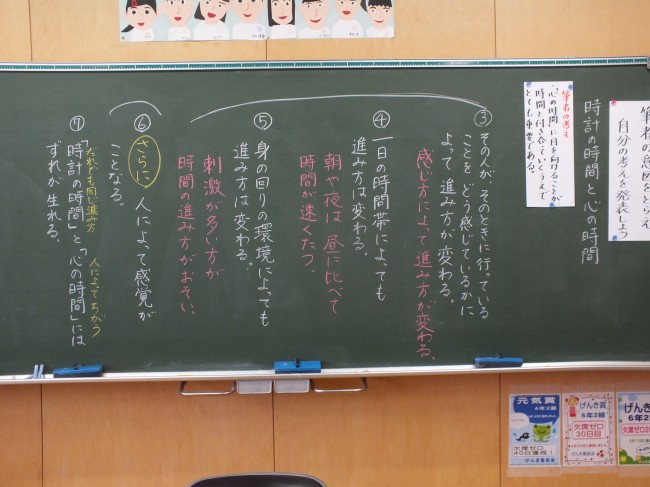 筆者の意図をとらえ
自分の考えを発表しよう
時計の時間と心の時間
筆者の考え
「心の時間」に目を向けることが
時間と付き合っていくうえで
とても重要である。
③その人が、そのときに行っている
ことをどう感じているかに
よって進み方が変わる。
感じ方によって進み方が変わる。
④一日の時間帯によっても
進み方は変わる。
朝や夜は昼に比べて
時間が速くたつ。
⑤身の回りの環境によっても
進み方は変わる。
刺激が多い方が
時間の進み方がおそい。
⑥さらに、人によって感覚が
ことなる。
だれでも同じ進み方
人によってちがう
⑦「時計の時間」と「心の時間」には
ずれが生れる。
元気賞
6年2組
欠席ゼロ
40日達成!
げんき委員会
げんき賞
6年2組
欠席ゼロ
30日目
げんき賞
6年2
欠席ゼロ2